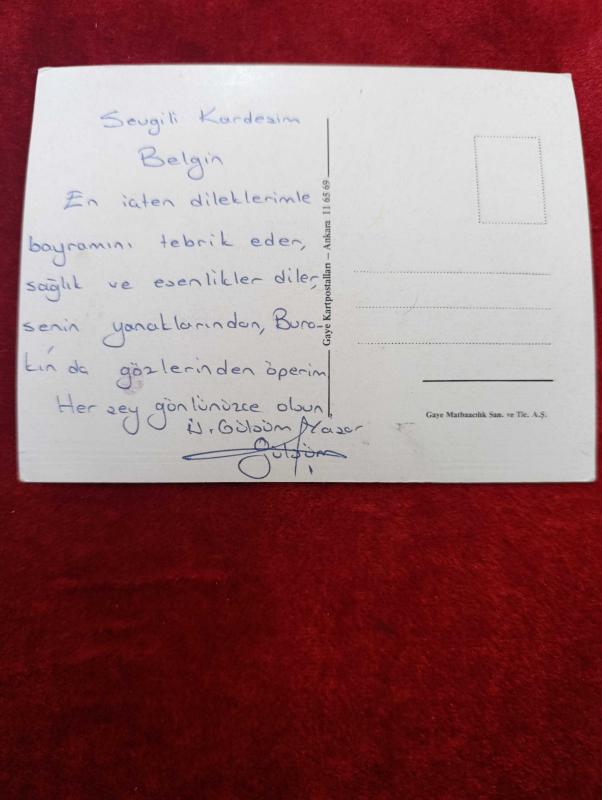 Sevgili Kardeşim
Belgin
En içten dileklerimle
bayramını tebrik eder,
sağlık ve esenlikler diler,
senin yanaklarından, Bura-
k'ın da gözlerinden öperim
Her şey gönlünüzce olsun.
Ü. Gülsüm Yaşar
Gülsüm
Gaye Kartpostalları – Ankara 11 65 69
Gaye Matbaacılık San. ve Tic. A.Ş.